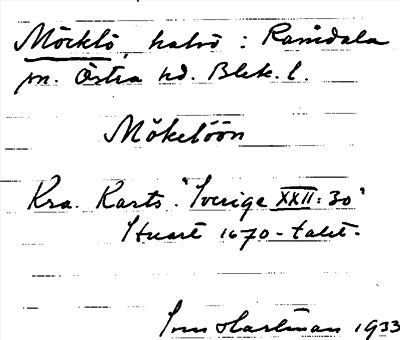 Möcklö, halvö: Ramdala
sn. Östra hd. Blek. l.
Mökelöön
Kra. Karts. "Sverige XXII:30"
Stuart 1670-talet.
Sven Hartman 1933